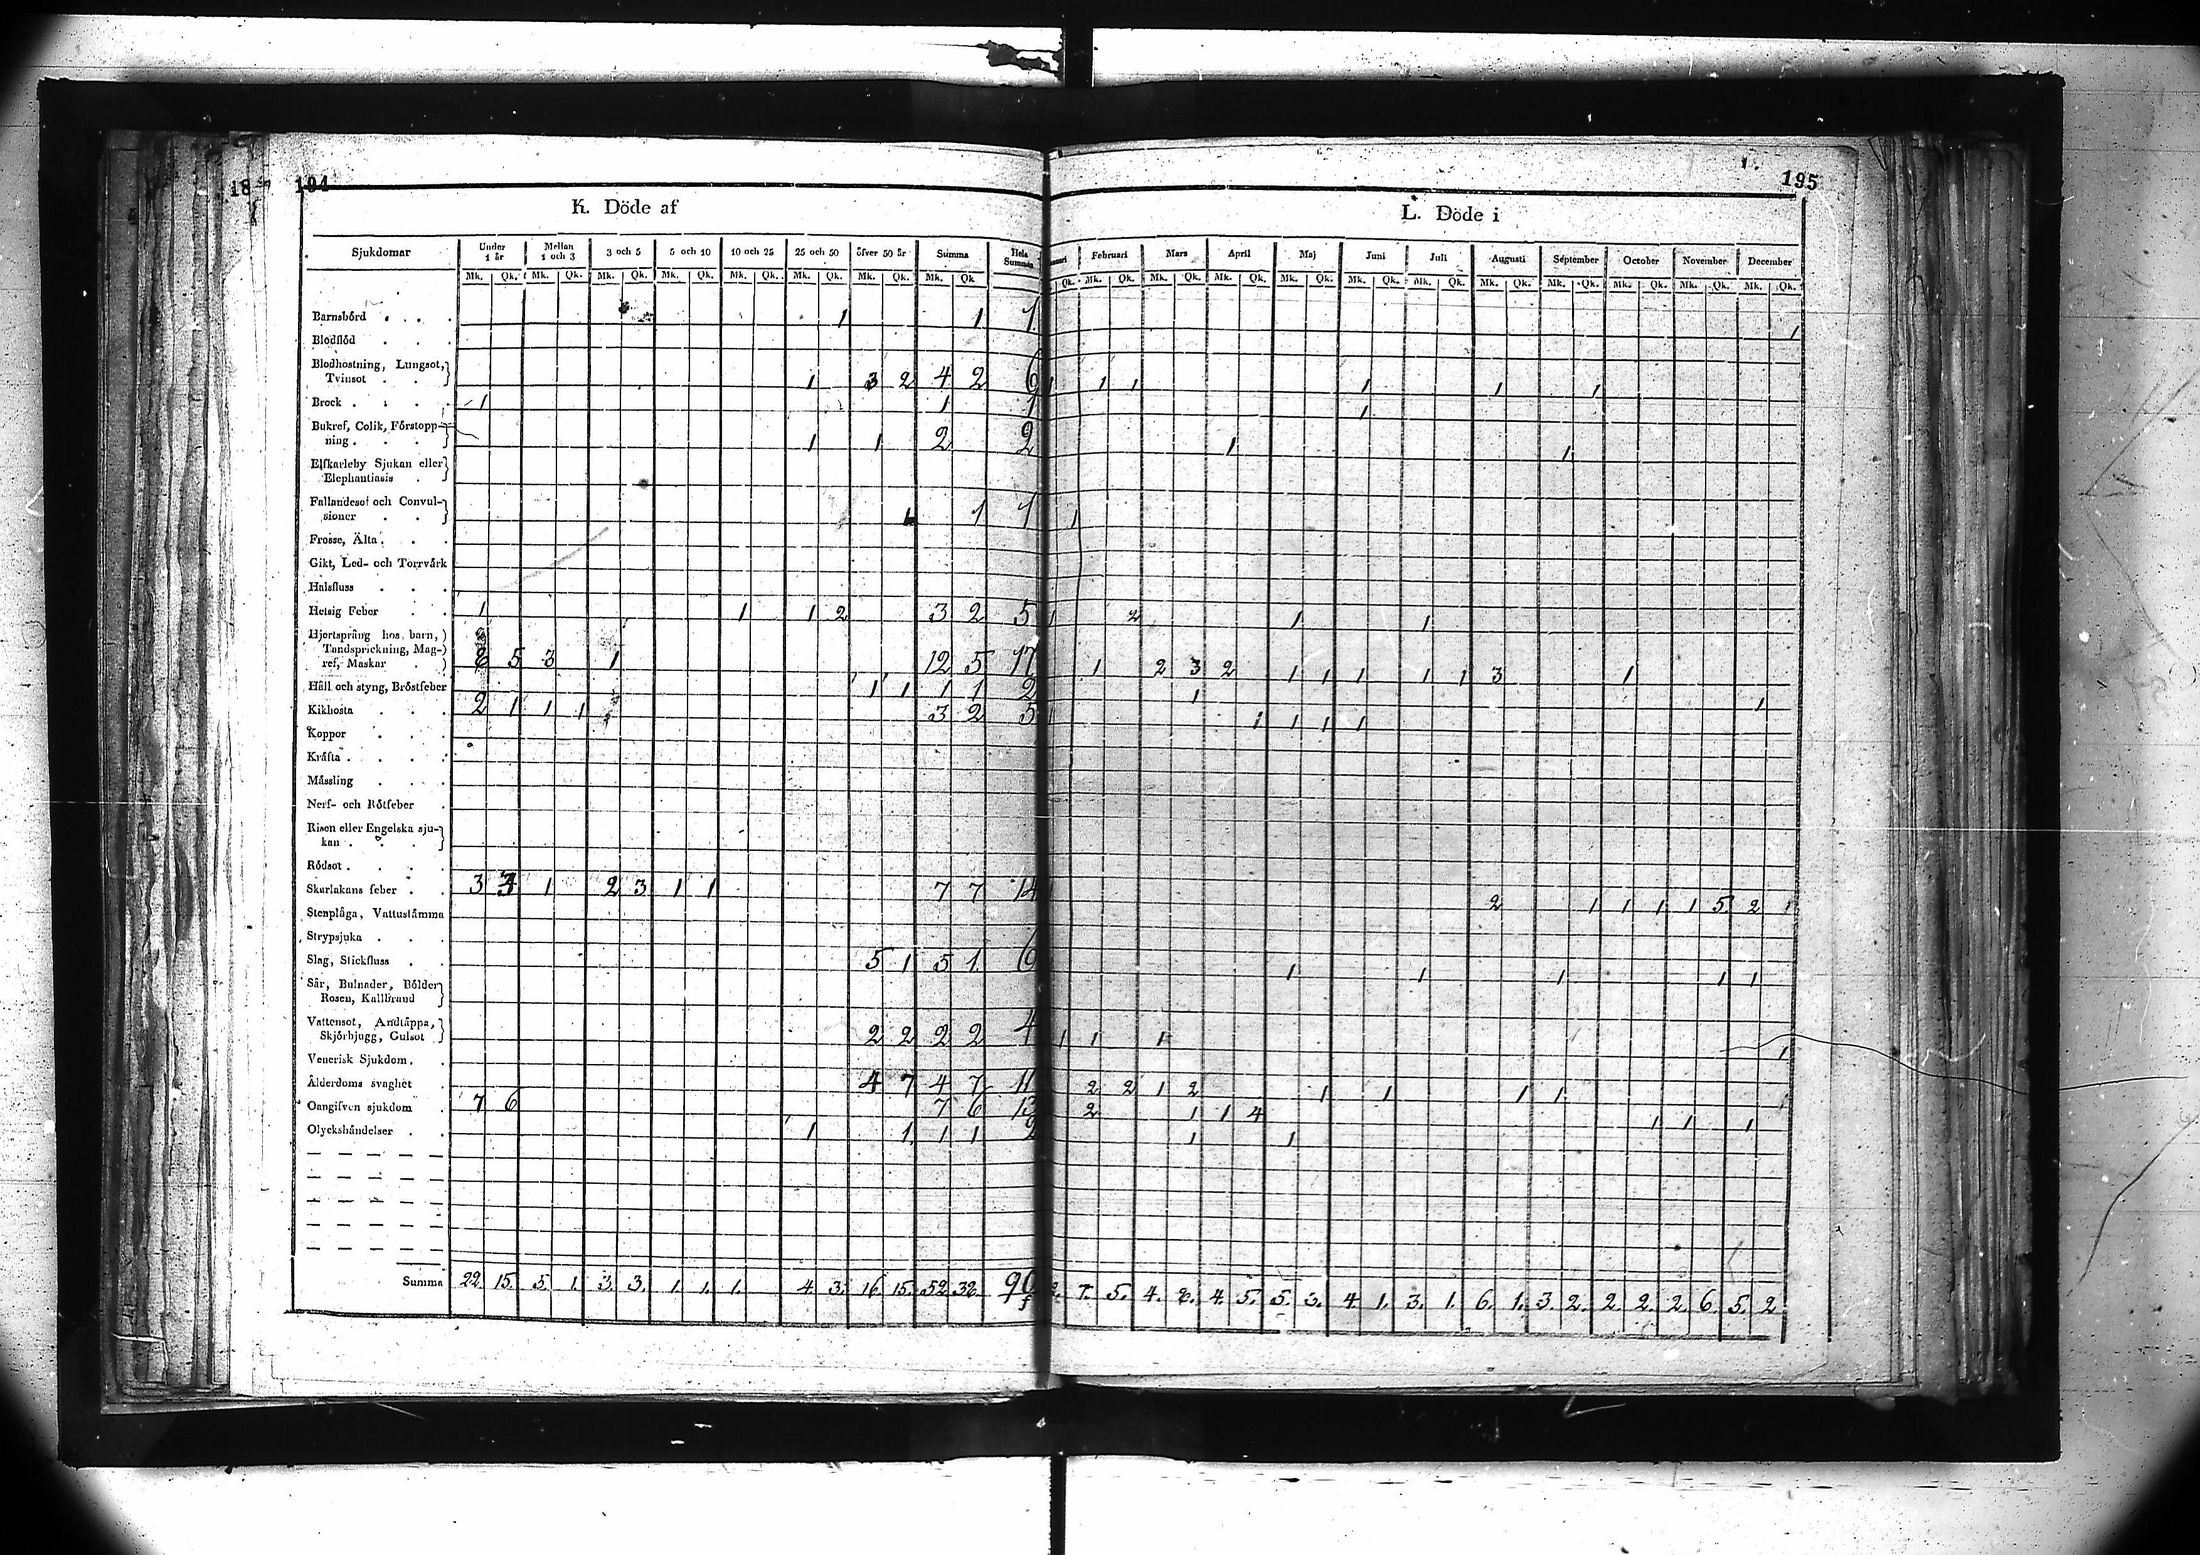 194
K. Döde af
Sjukdomar Under 1 år Mellan 1 och 3 3 och 5 5 och 10 10 och 25 25 och 50 öfver 50 år Summa Hela Summan
Mk. Qk. Mk. Qk. Mk. Qk. Mk. Qk. Mk. Qk. Mk. Qk. Mk. Qk. Mk. Qk
Barnsbörd . . . . 1 1 1
Blodflöd . . .
Blodhostning, Lungsot,
Tvinsot . . . 1 3 2 4 2 6
Brock . . . . 1 1 1
Bukref, Colik, Förstopp-
ning . . . . 1 1 2 2
Elfkarleby Sjukan eller
Elephantiasis .
Fallandesot och Convul-
sioner . . . 1 1 1
Frosse, Älta . . .
Gikt, Led- och Torrvärk
Halsfluss . . .
Hetsig Feber . . 1 1 1 2 3 2 5
Hjertsprång hos barn,
Tandsprickning, Mag-
ref, Maskar . 5 3 1 12 5 17
Håll och styng, Bröstfeber 1 1 1 1 2
Kikhosta . . . 2 1 1 1 3 2 5
Koppor . . .
Kräfta . . . .
Mässling . . .
Nerf- och Rötfeber .
Risen eller Engelska sju-
kan . . . .
Rödsot . . . .
Skarlakans feber . . 3 3 1 2 3 1 1 7 7 14
Stenplåga, Vattustämma
Strypsjuka . . .
Slag, Stickfluss . . 5 1 5 1 6
Sår, Bulnader, Bölder
Rosen, Kallbrand
Vattensot, Andtäppa,
Skjörbjugg, Gulsot 2 2 2 2 4
Venerisk Sjukdom .
Ålderdoms svaghet . 4 7 4 7 11
Oangifven sjukdom . 7 6 7 6 13
Olyckshändelser . . 1 1 1 1 2
Summa 22. 15. 5. 1. 3. 3. 1. 1. 1. 4. 3. 16. 15. 52 38 90
195
L. Döde i
Februari Mars April Maj Juni Juli Augusti September October November December
Qk. Mk. Qk. Mk. Qk. Mk. Qk. Mk. Qk. Mk. Qk. Mk. Qk. Mk. Qk. Mk. Qk. Mk. Qk. Mk. Qk. Mk. Qk.
1
1 1 1 1 1 1
1
1 1
1
1 2 1 1
1 2 3 2 1 1 1 1 1 3 1
1 1
1 1 1 1 1
2 1 1 1 1 5 2 1
1 1 1 1 1
1 1 1 1
2 2 1 2 1 1 1 1 1
2 1 1 4 1 1 1
1 1
7. 5. 4. 4. 5. 5. 3. 4 1. 3. 1. 6. 1. 3. 2. 2. 2. 2. 6. 5. 2